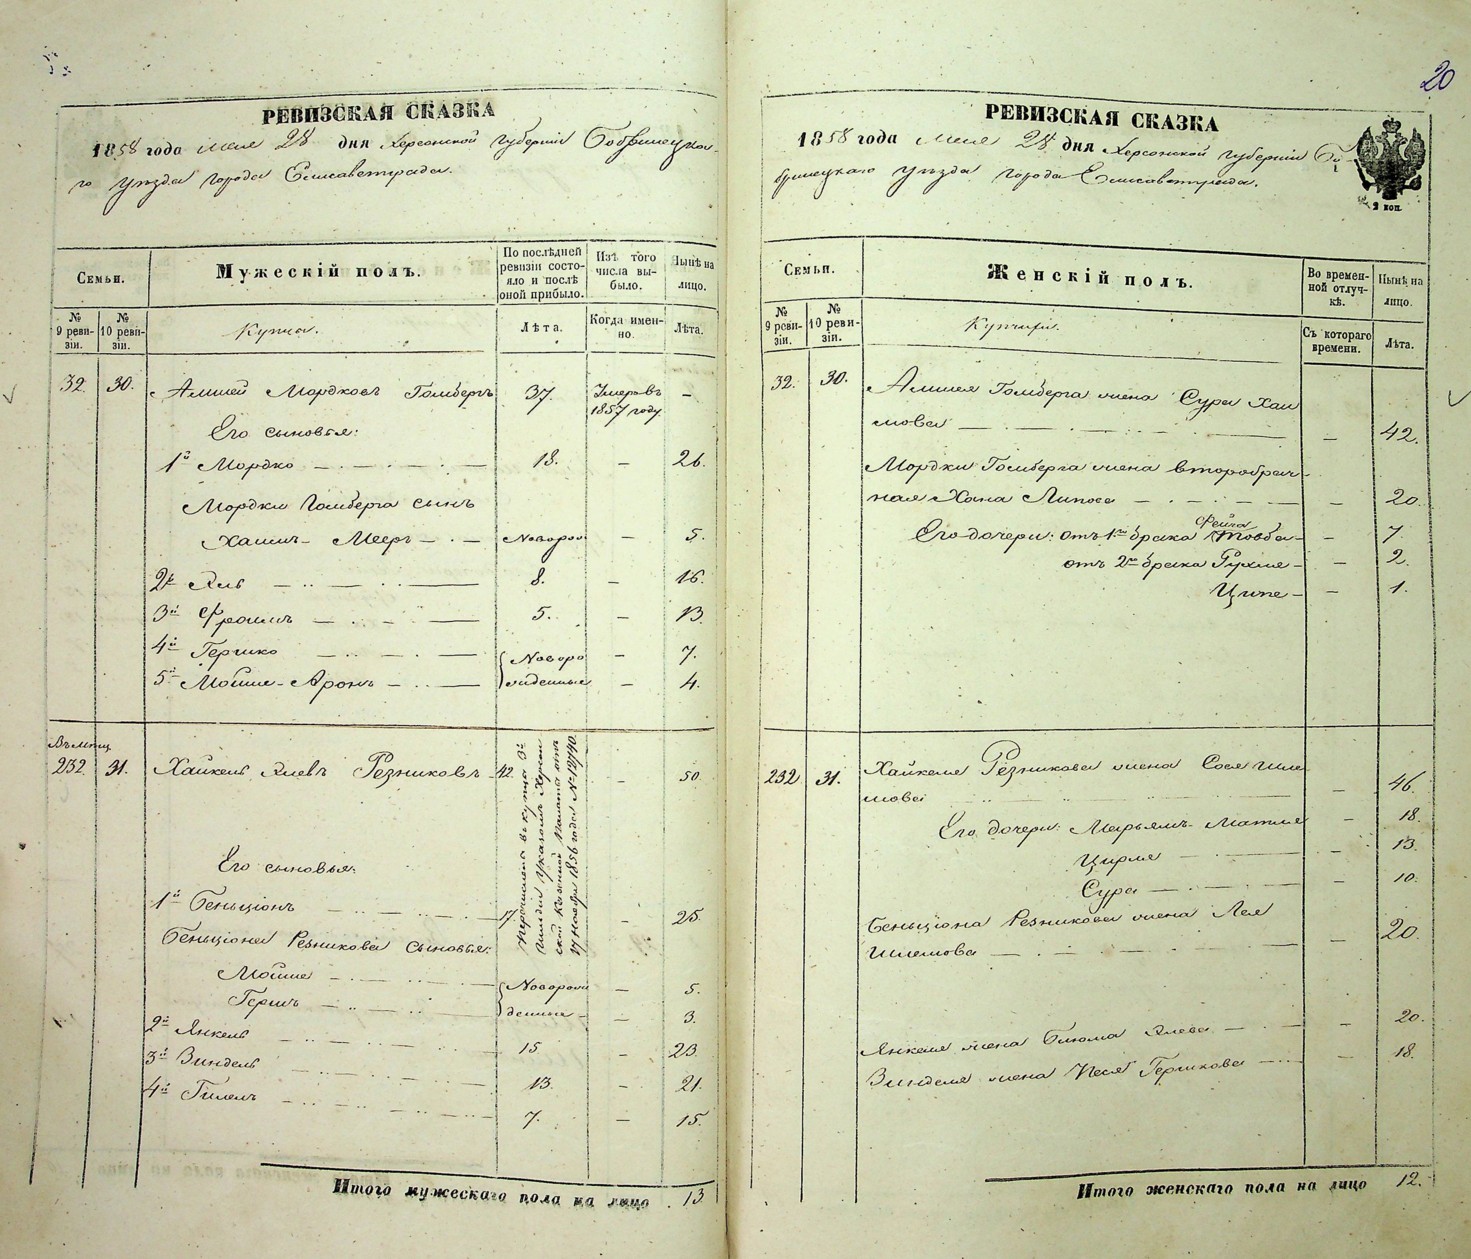 РЕВИЗСКАЯ СКАЗКА
1858 года мая 28 дня Херсонской губерніи Бобринецка-
го уѣзда города Елисаветграда.
Семьи.
Мужескій полъ.
По послѣдней ревизіи состояло и послѣ оной прибыло.
Изъ того числа выбыло.
Нынѣ на лицо.
№ 9 ревизіи.
№ 10 ревизіи.
Купцы.
Лѣта.
Когда именно.
Лѣта.
32. 30. Амшей Мордковъ Гомбергъ 37. Умеръ въ 1857 году. –
Его сыновья:
1й Мордко 18. – 26.
Мордки Гомберга сынъ
Хаимъ-Мееръ Новорож – 5.
2й Яль 8. – 16.
3й Фроимъ 5. – 13.
4й Гершко – 7.
Новоро
5й Мойше-Аронъ жденные – 4.
Въ мѣщ
232 31. ХайкельЯлевъ Резниковъ 42. – 50.
Перечисленъ въ купцы 3й гильдіи указомъ Херсонской Казенной Палаты отъ 17 Ноября 1856 года № 12740.
Его сыновья:
1й Беньціонъ 17. – 25.
Беньціона Резникова сыновья:
Мойше Новорож – 5.
Гершъ денные – 3.
2й Янкель 15 – 23.
3й Зиндель 13. – 21.
4й Гилель 7. – 15.
Итого мужескаго пола на лицо 13.
20
РЕВИЗСКАЯ СКАЗКА
1858 года мая 28 дня Херсонской губерніи Бо-
бринецкаго уѣзда города Елисаветграда.
2 коп.
Семьи.
Женскій полъ.
Во временной отлучкѣ.
Нынѣ на лицо.
№ 9 ревизіи.
№ 10 ревизіи.
Купчихи.
Съ котораго времени.
Лѣта.
32. 30. Амшея Гомберга жена Сура Хаи
мова – 42.
Мордки Гомберга жена второбрач-
ная Хана Липова – 20.
Фейга
Его дочери: отъ 1го брака Товба – 7.
отъ 2го брака Рухля – 2.
Ципе – 1.
232 31. Хайкеля Резникова жена Сося Шле
мова – 46.
Его дочери: Марьямъ-Матля – 18.
Цирля – 13.
Сура – 10.
Беньціона Резникова жена Лея
Шлемова – 20.
Янкеля жена Блюма Ялева – 20.
Зинделя жена Песя Гершкова – 18.
Итого женскаго пола на лицо 12.